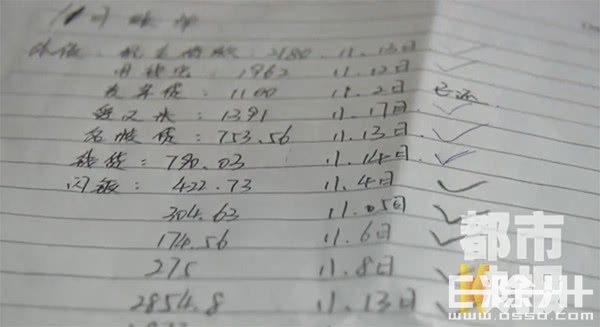 11月账单
2180. 11.13日
用钱宝: 1962 11.12日
发薪贷: 1100 11.2日 已还
1391 11.17日
名校贷: 753.56 11.13日
790.03 11.14日
闪银: 422.73 11.4日
304.63 11.05日
174.56 11.6日
275 11.8日
2854.8 11.13日
都市
E滁州
www.0550.com